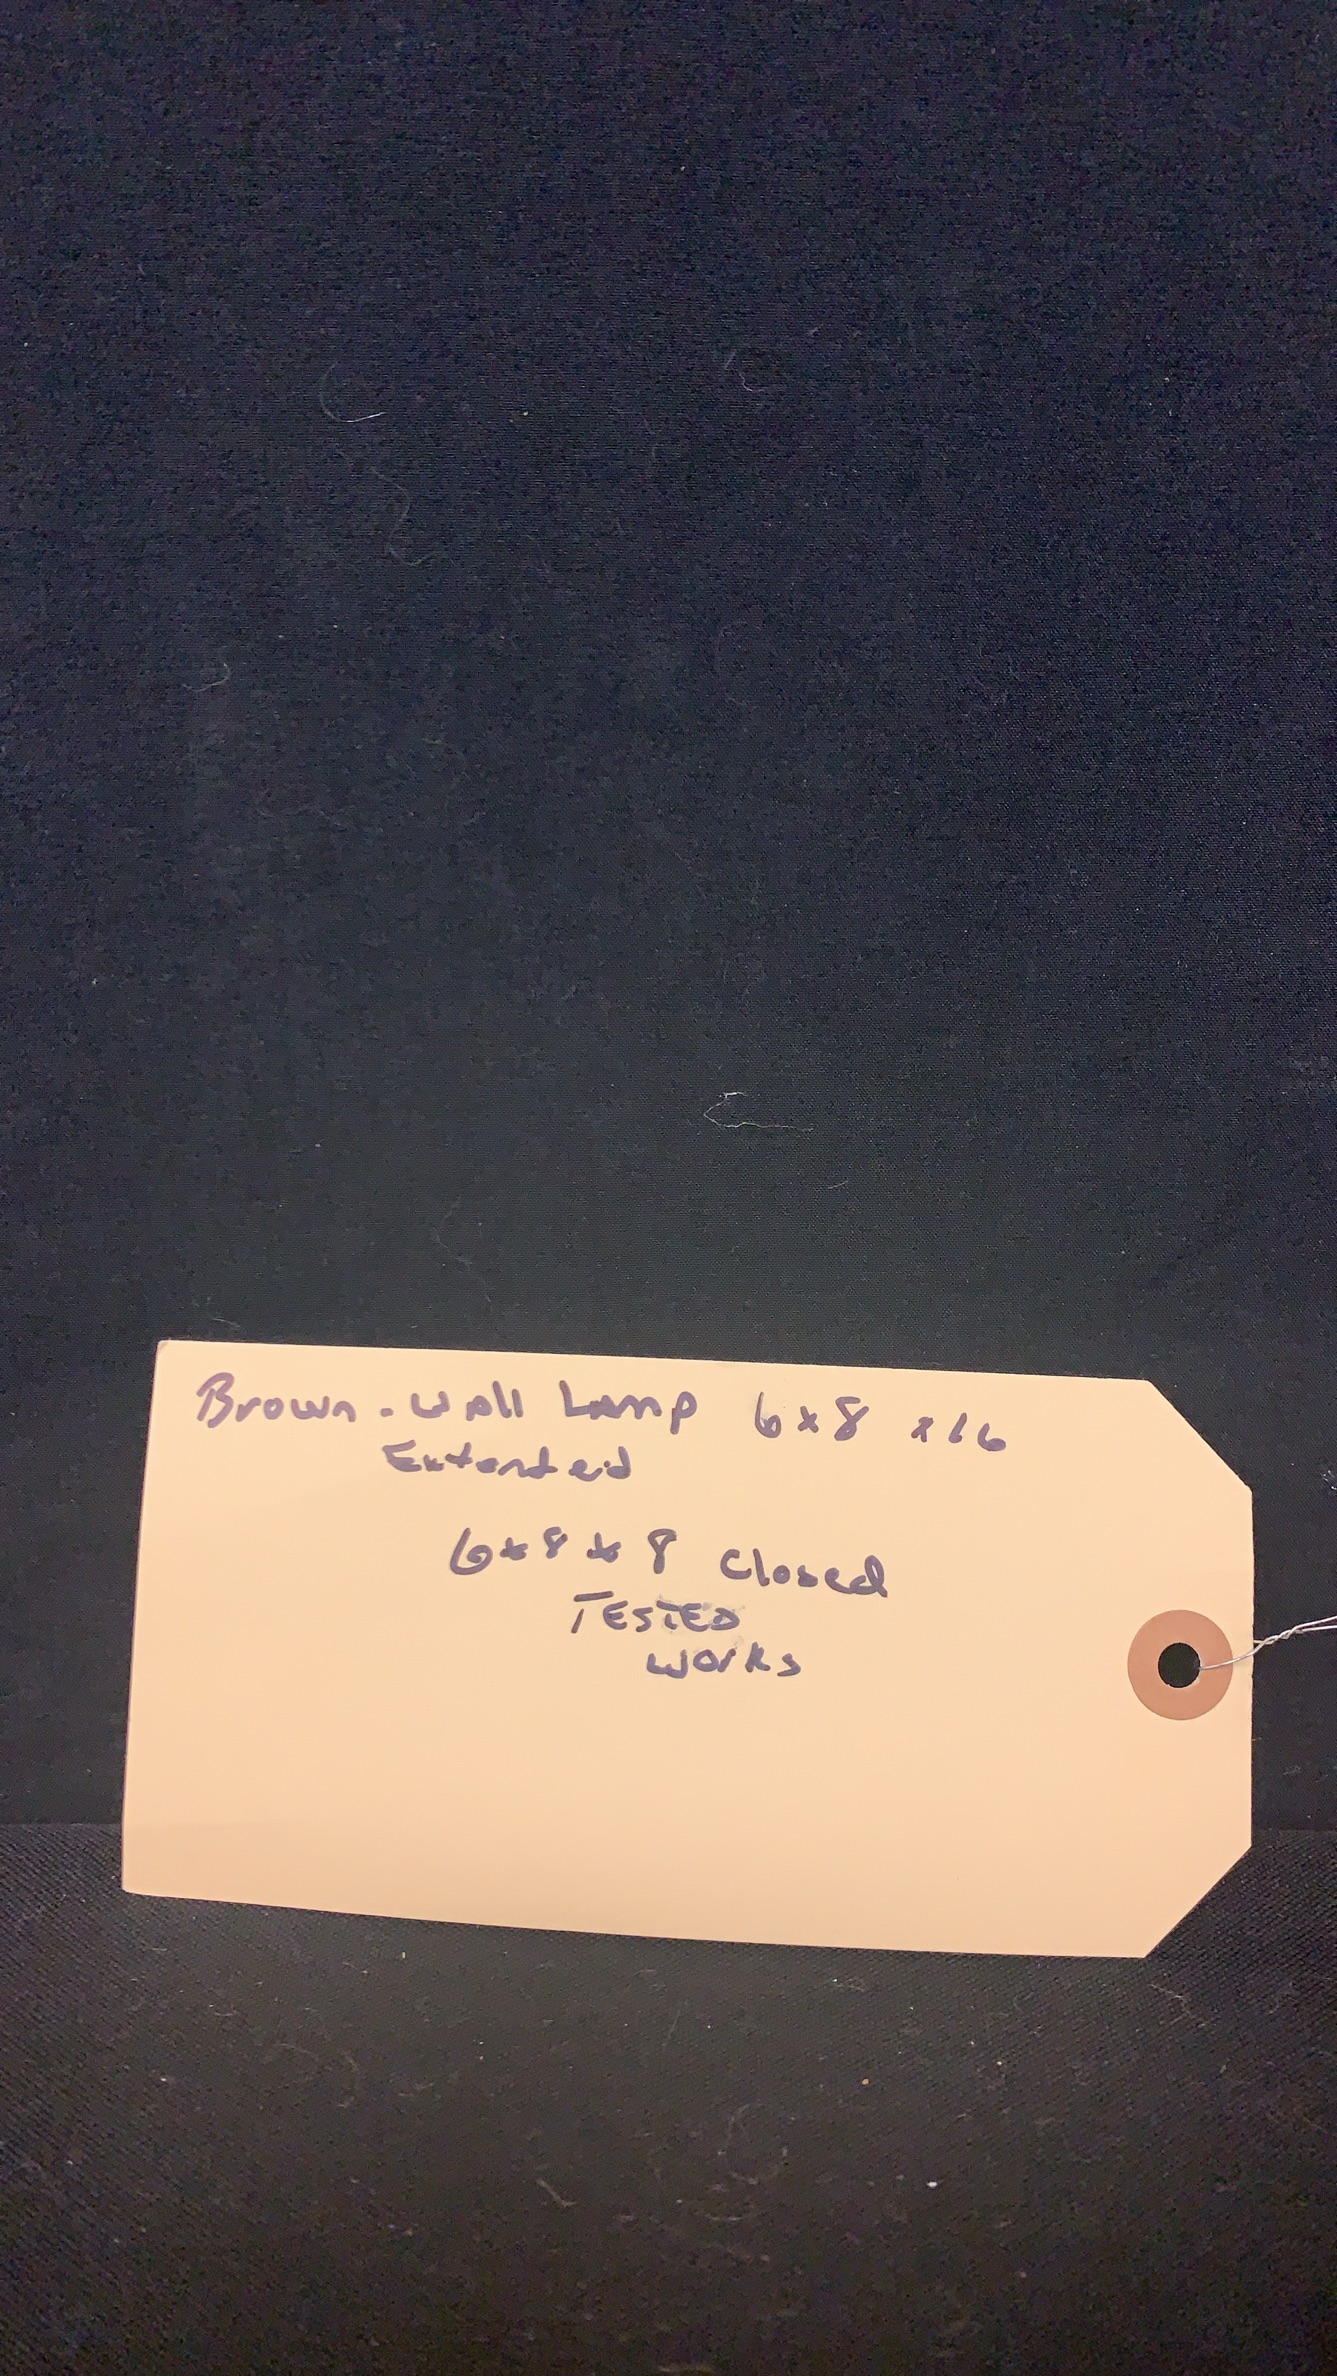 Brown - Wall Lamp 6x8 x16
Extended
6x8x8 Closed
TESTED
works